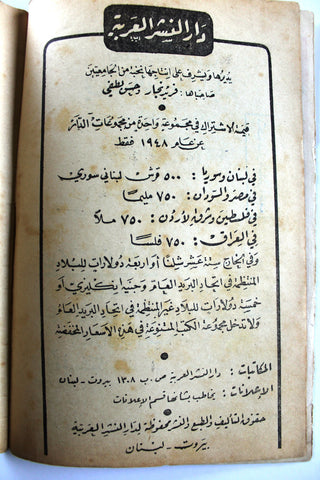 دار النشر العربية
يديرها ويشرف على إنتاجها نخبة من الجامعيين
صاحباها: فريد نجار وحسن لطفي
قيمة الاشتراك في مجموعة واحدة من مجموعات الدار
عن عام ١٩٤٨ فقط
في لبنان وسوريا: ٥٠٠ قرش لبناني سوري
في مصر والسودان: ٧٥٠ مليما
في فلسطين وشرق الأردن: ٧٥٠ ملا
في العراق: ٧٥٠ فلسا
وفي الخارج ستة عشر شلنا أو أربعة دولارات للبلاد
المنتظمة في اتحاد البريد العام وجنيه إنكليزي أو
خمسة دولارات للبلاد غير المنتظمة في اتحاد البريد العام
ولا تدخل مجموعة الكتب المتنوعة في هذه الأسعار المخفضة
المكاتبات: دار النشر العربية ص.ب ١٣٠٨ بيروت - لبنان
الإعلانات: يخاطب بشأنها قسم الإعلانات
حقوق التأليف والطبع والنشر محفوظة لدار النشر العربية
بيروت - لبنان